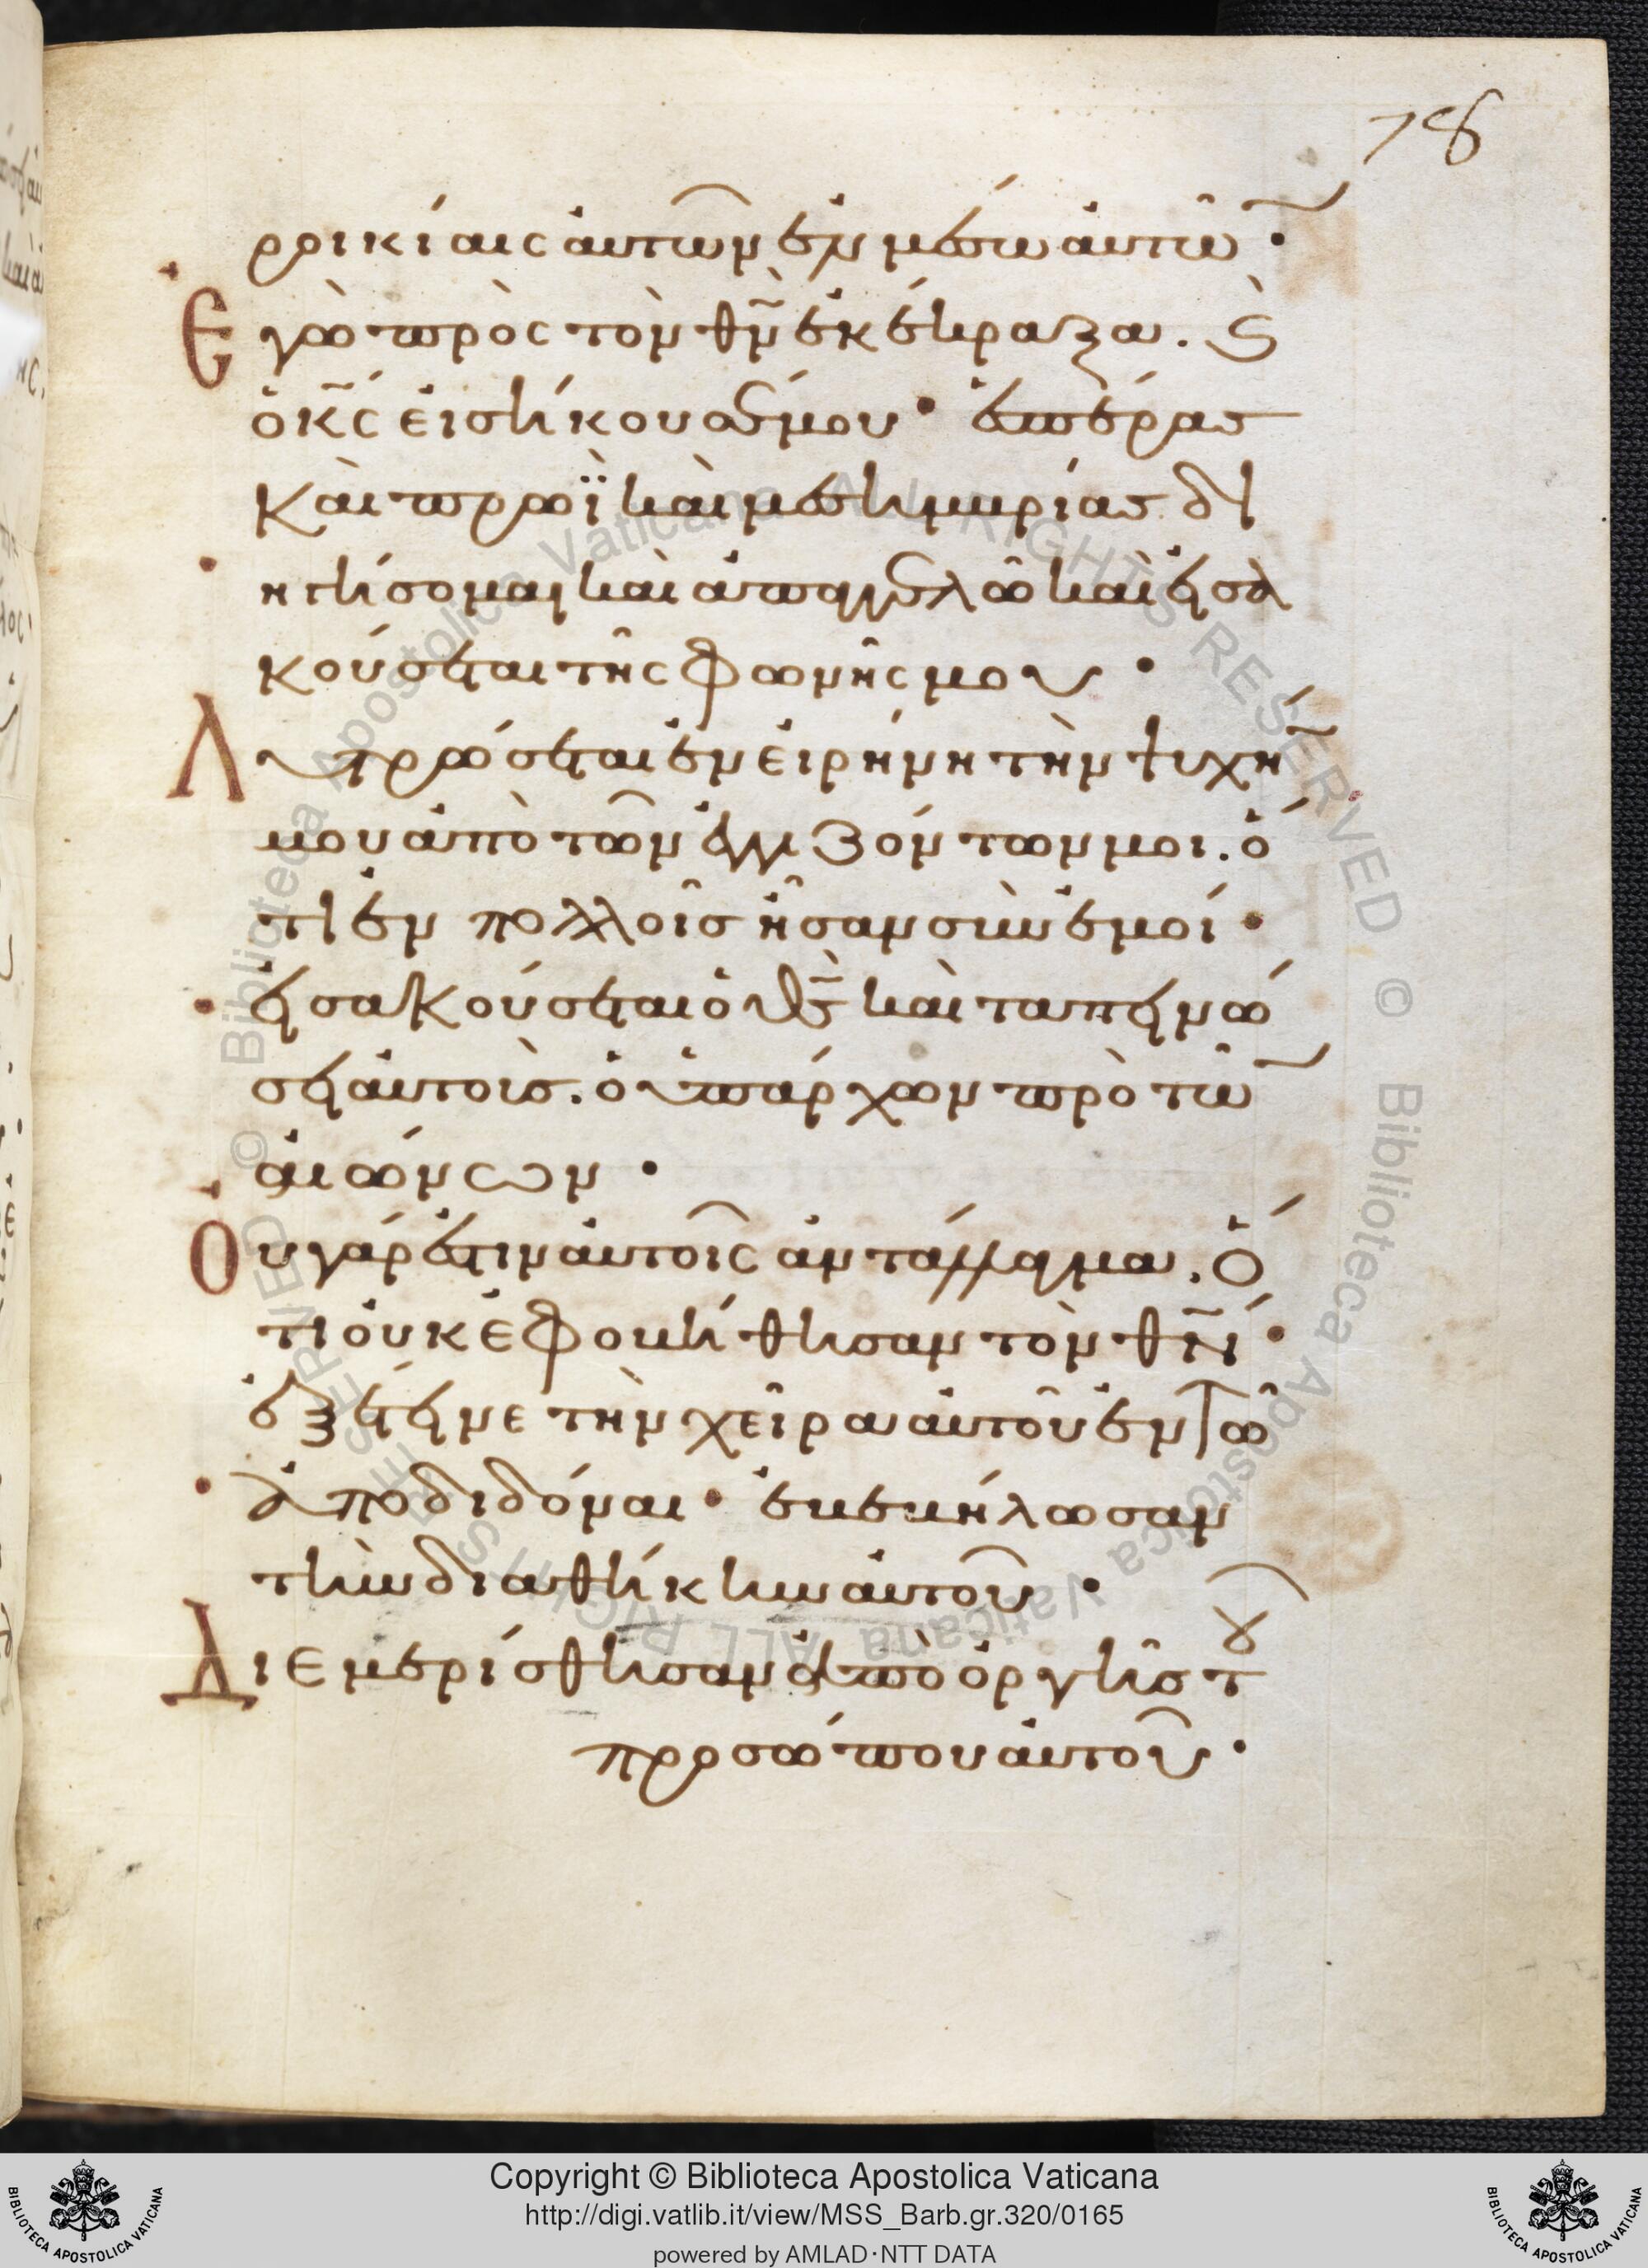 78
ροικίαις αὐτῶν ἐν μέσω αὐτῶ̅·
Ἐγὼ πρὸς τὸν θ̅ν̅ ἐκέκραξα. ϛ̀
ὁ κ̅ς̅ εἰσήκουσέ μου· ἑσπέρας
καὶ πρωῒ καὶ μεσημβρίας δι
ηγήσομαι καὶ ἀπαγγελῶ καὶ εἰσα
κούσεται τῆς φωνῆς μου·
Λυτρώσεται ἐν εἰρήνη τὴν ψυχή̅
μου ἀπὸ τῶν ἐγγιζόντων μοι. ὅ
τι ἐν πολλοῖς ἦσαν σὺν ἐμοί·
εἰσακούσεται ὁ θ̅ς̅ καὶ ταπεινώ
σει αὐτοὺς. ὁ ὑπάρχων πρὸ τῶ̅
αἰώνων·
Οὐ γάρ ἐστιν αὐτοῖς ἀντάλλαγμα. ὅ
τι οὐκ ἐφοβήθησαν τὸν θ̅ν̅·
ἐξέτεινε τὴν χεῖρα αὐτοῦ ἐν τῶ
ἀποδιδόναι· ἐβεβήλωσαν
τὴν διαθήκην αὐτοῦ·
Διεμερίσθησαν ἀπὸ ὀργῆς τοῦ
προσώπου αὐτοῦ·
Biblioteca Apostolica Vaticana ALL RIGHTS RESERVED © Biblioteca Apostolica Vaticana ALL RIGHTS RESERVED ©
Copyright © Biblioteca Apostolica Vaticana
http://digi.vatlib.it/view/MSS_Barb.gr.320/0165
powered by AMLAD·NTT DATA
BIBLIOTECA APOSTOLICA VATICANA
BIBLIOTECA APOSTOLICA VATICANA